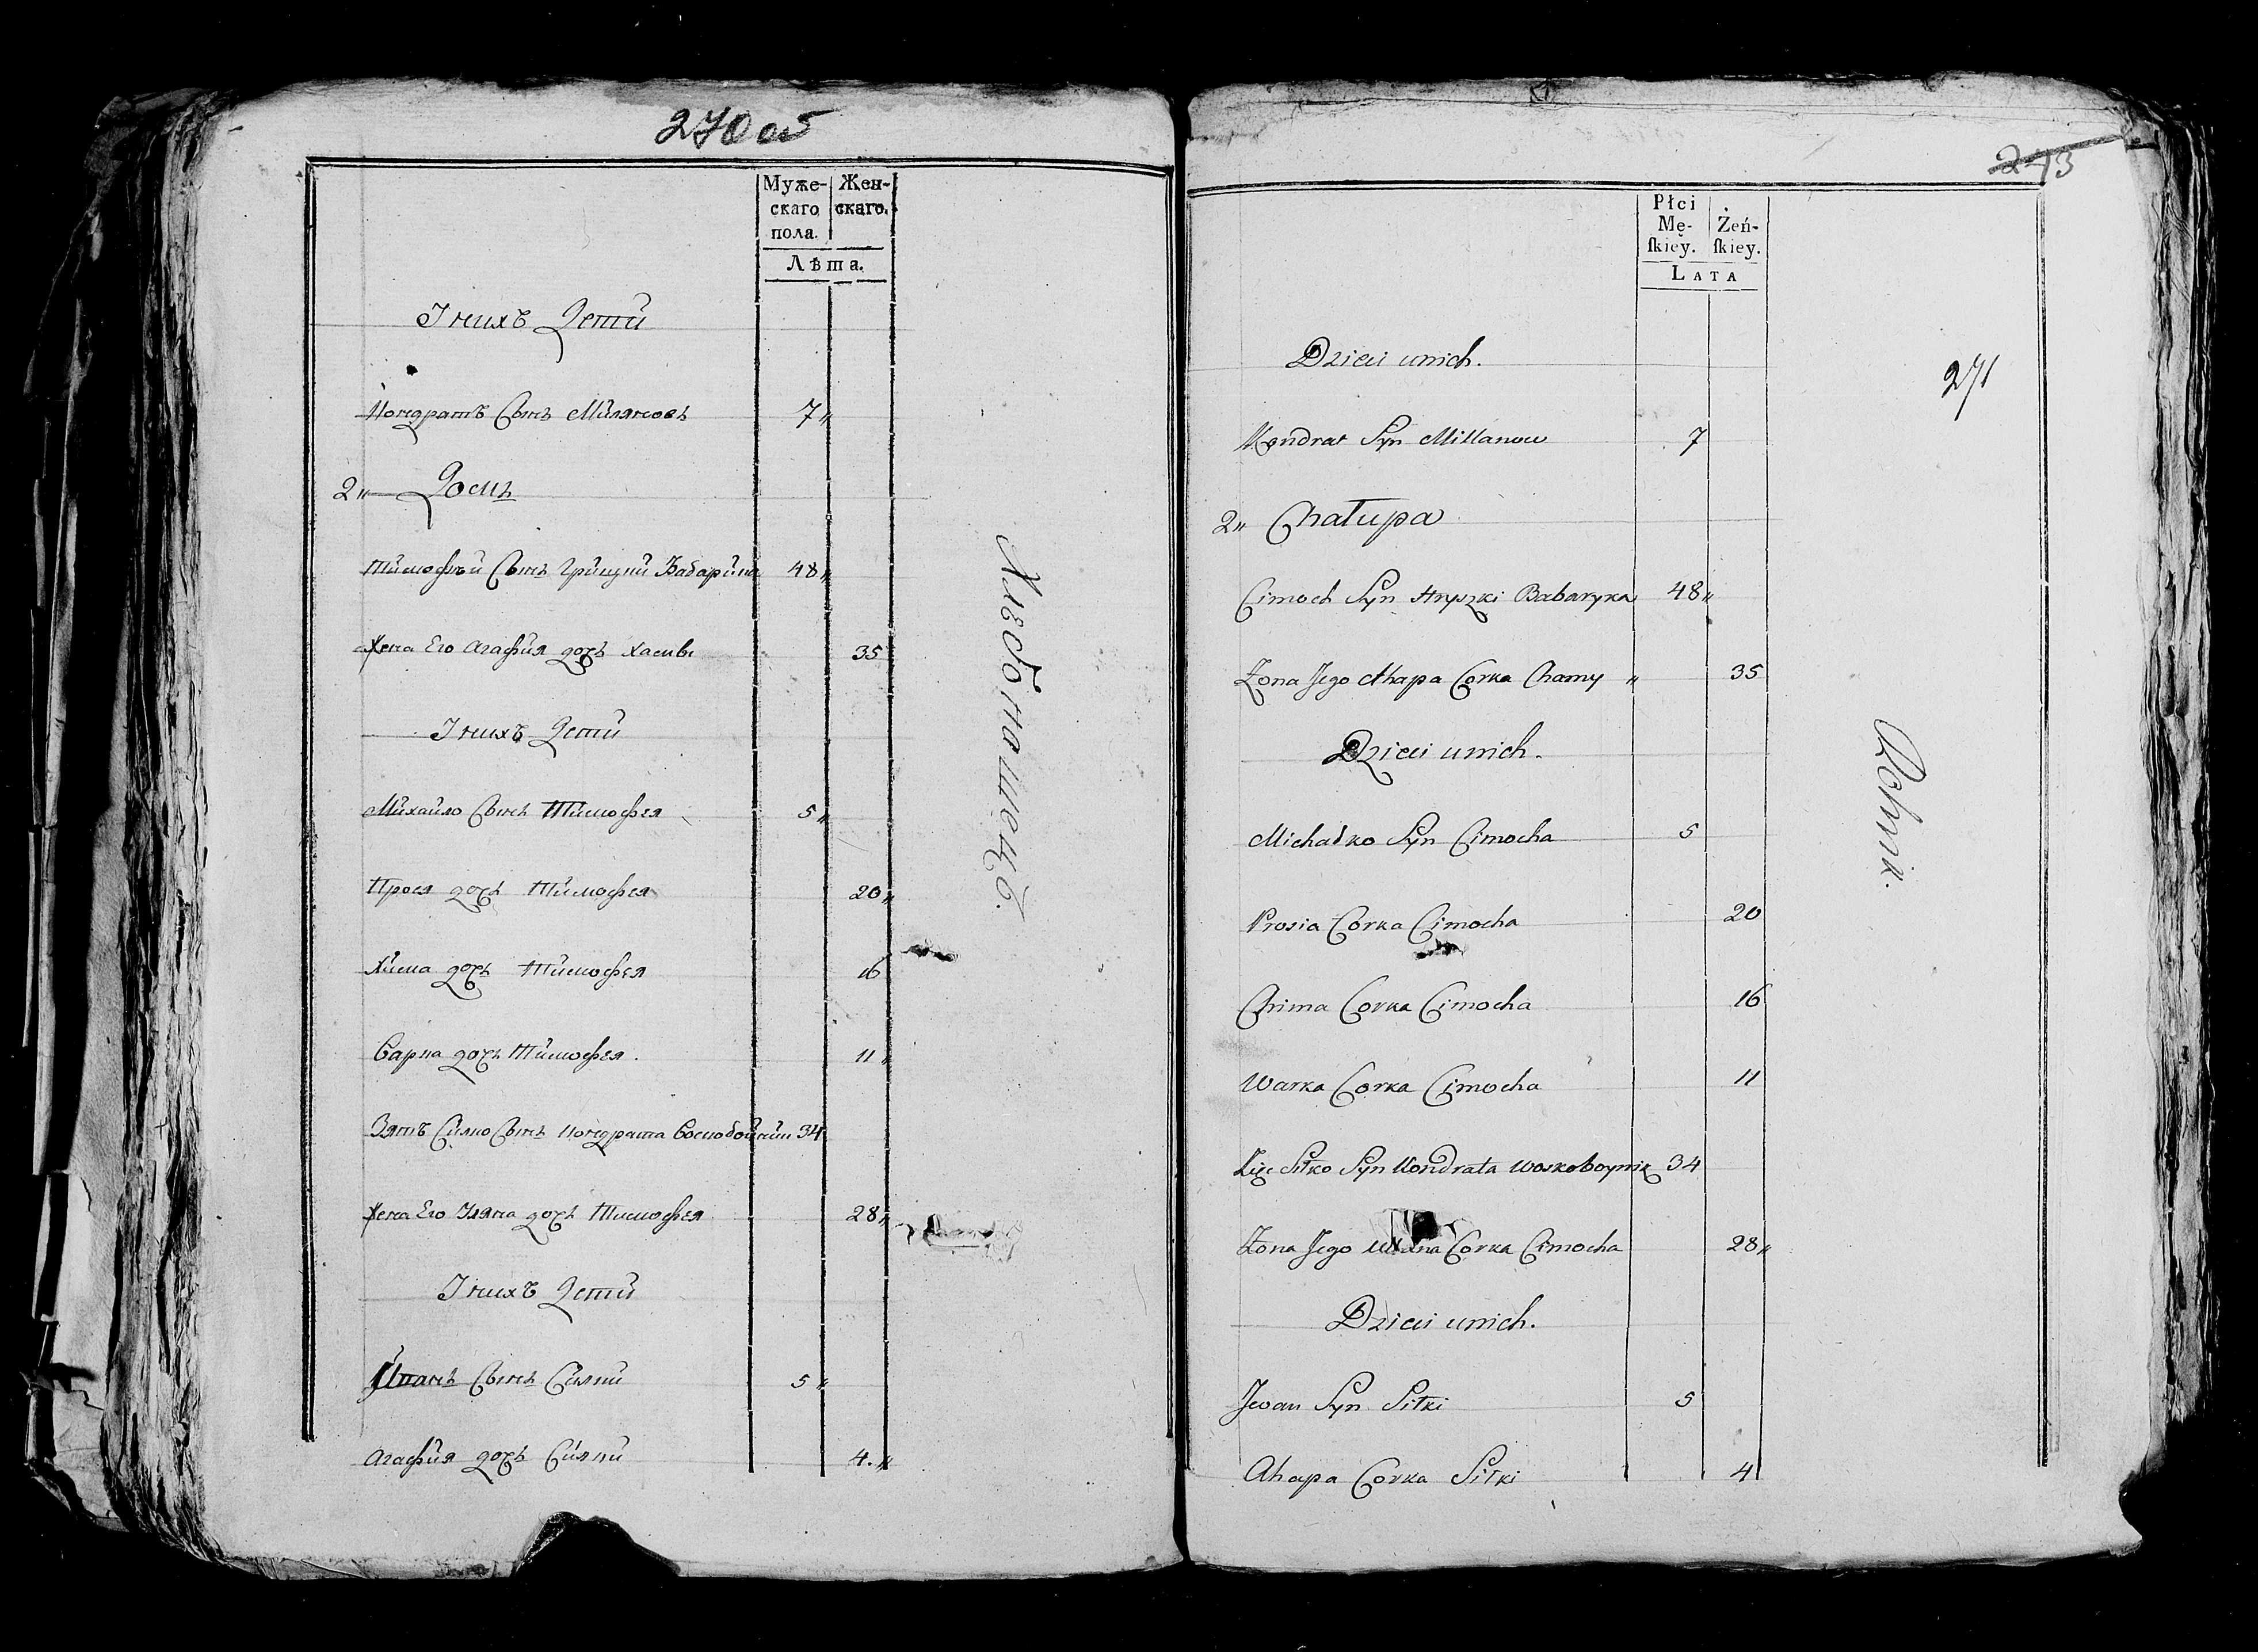 270 об
Муже-
скаго
пола.
Жен-
скаго.
Лѣта.
У нихъ Дети
Кондратъ Сынъ Миляновъ 7„
2„ Домъ
Тимофѣй Сынъ Грицки Бабарика 48„
Жена Его Агафия дочь Хамы 35
У нихъ Дети
Михайло Сынъ Тимофея 5„
Прося дочь Тимофея 20„
Хима дочь Тимофея 16
Варка дочь Тимофея. 11„
Зять Силко Сынъ Кондрата Воскобойник 34
Жена Его Уляна дочь Тимофея 28„
У нихъ Дети
Иванъ Сынъ Силки 5„
Агафия дочь Силки 4.„
Хлебопашецъ.
273
Płci
Mę-
ſkiey.
Żeń-
ſkiey.
LATA
271
Dzieci unich.
Kondrat Syn Millanow 7
2„ Chałupa
Cimoch Syn Hryszki Babaryka 48„
Żona Jego Ahapa Corka Chamy „ 35
Dzieci unich.
Michałko Syn Cimocha 5
Prosia Corka Cimocha 20
Chima Corka Cimocha 16
Warka Corka Cimocha 11
Zięc Siłko Syn Kondrata Woskoboynik 34
Żona Jego Corka Cimocha 28„
Dzieci unich.
Jwan Syn Siłki 5
Ahapa Corka Siłki 4
Rolnik.